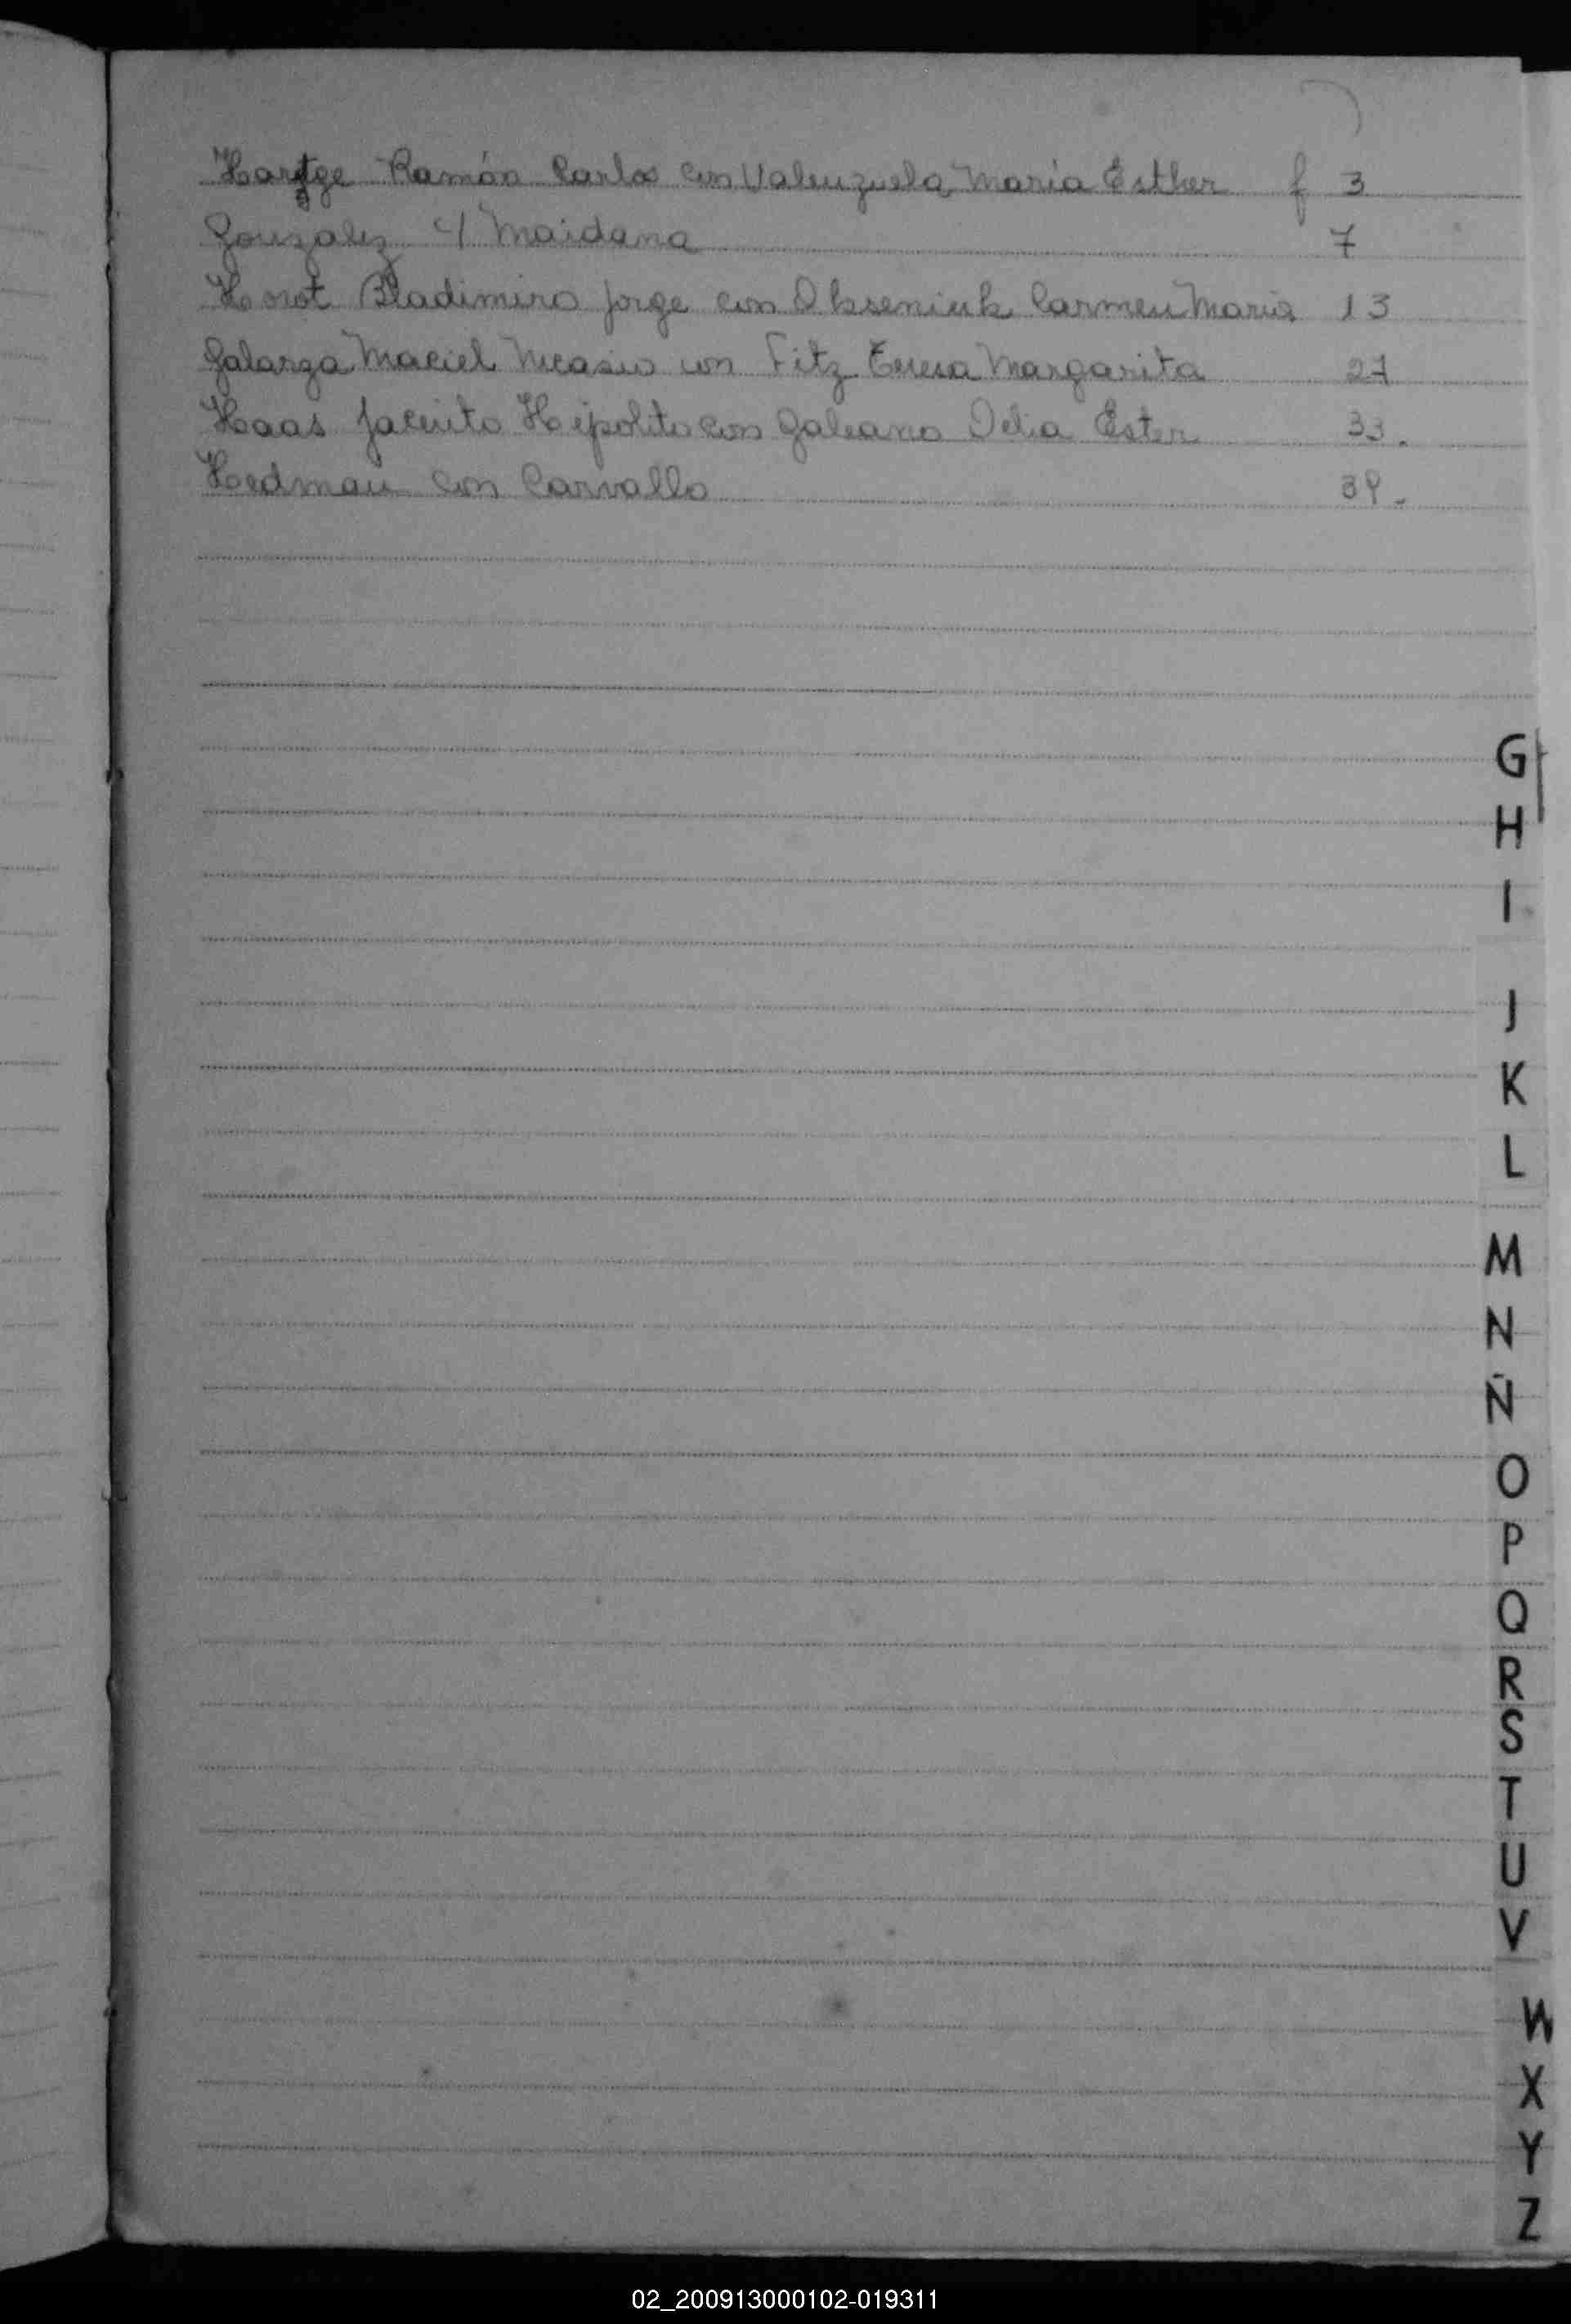 Hartge Ramón Carlos con Valenzuela Maria Esther f 3
Gonzalez c/ Maidana 7
Horot Bladimiro Jorge con Okseniuk Carmen Maria 13
Galarza Maciel Nicasio con Fitz Teresa Margarita 27
Haas Jacinto Hipolito con Galeano Delia Ester 33.
Hedman con Carvallo 39.
G
H
I
J
K
L
M
N
Ñ
O
P
Q
R
S
T
U
V
W
X
Y
Z
02_200913000102-019311